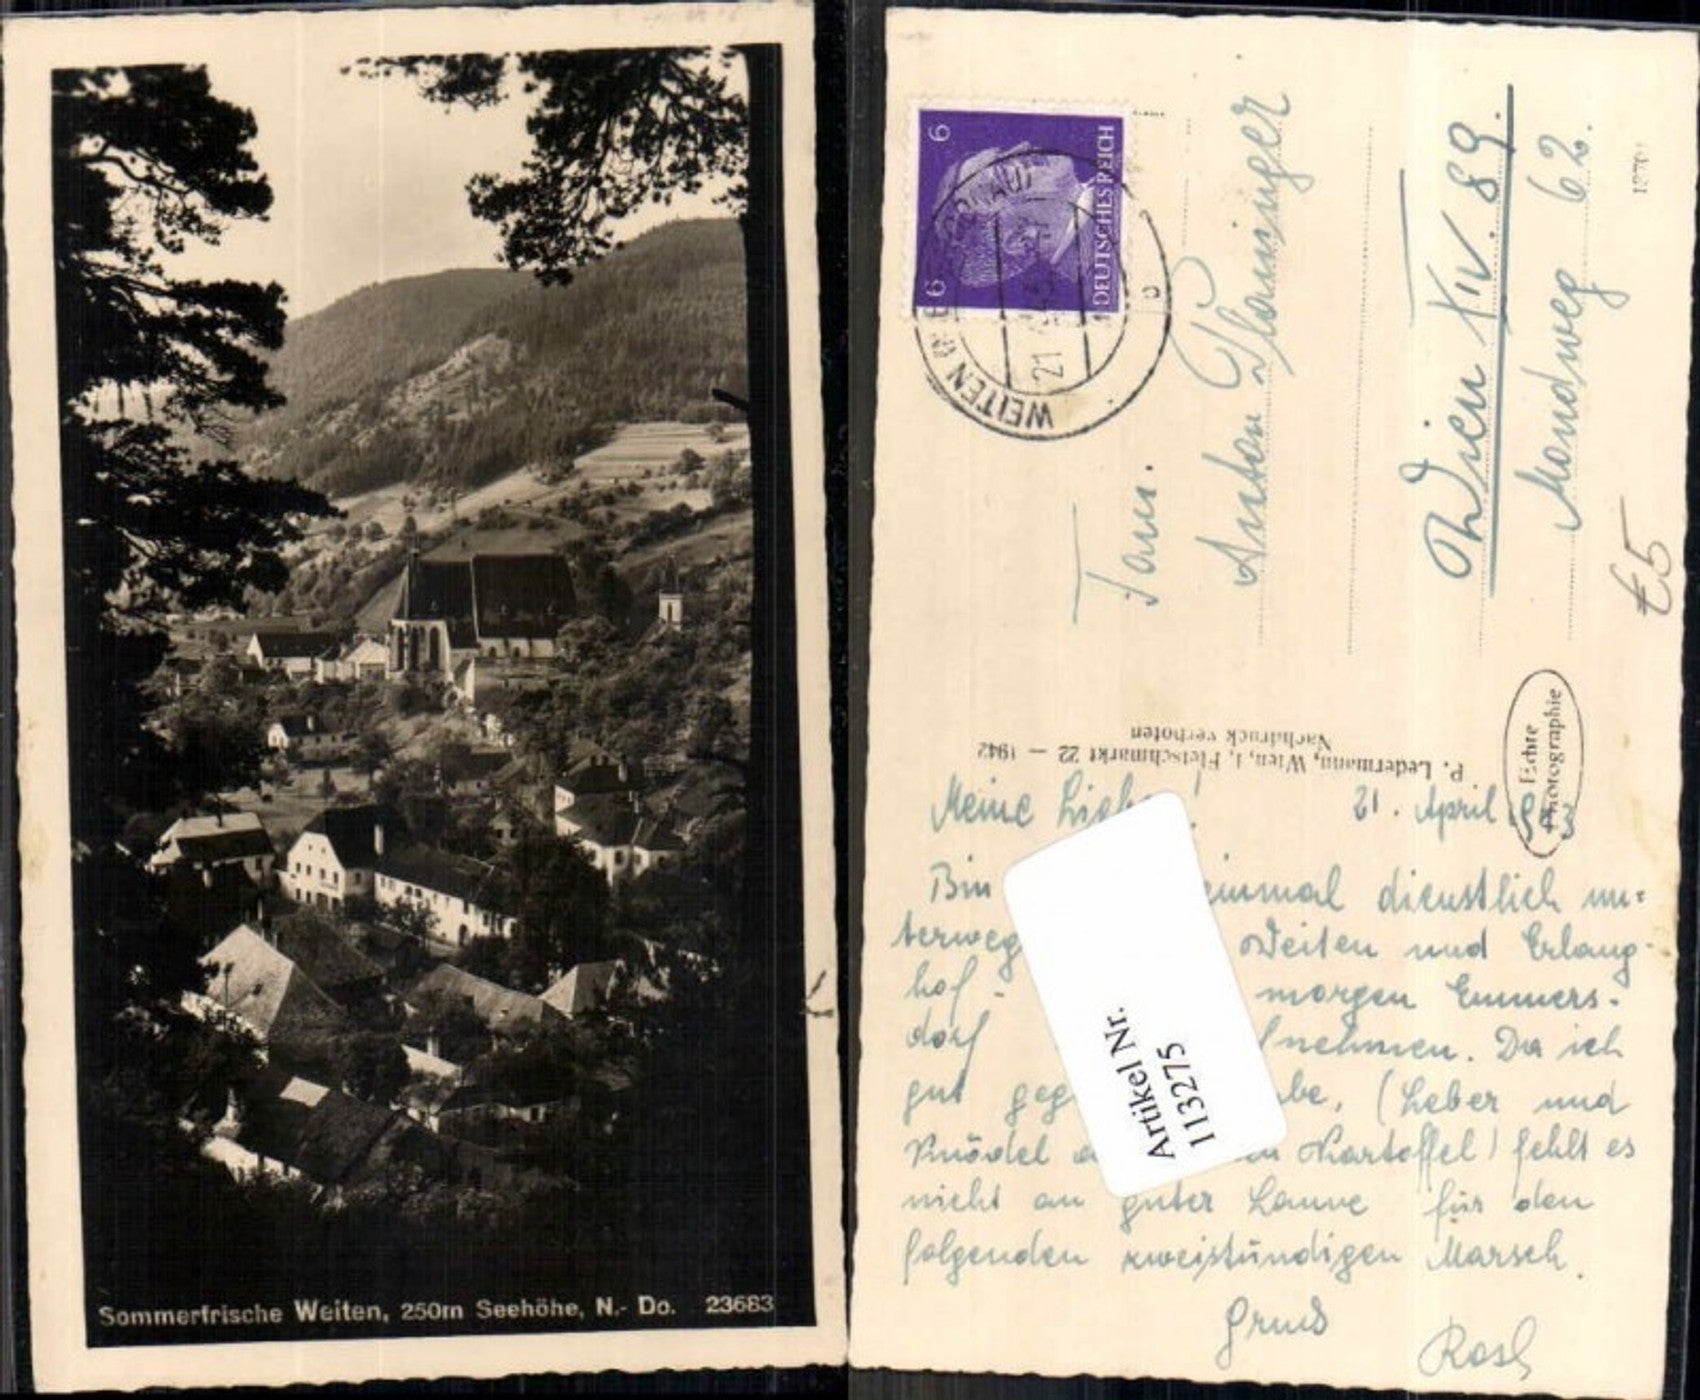 Sommerfrische Weiten, 250m Seehöhe, N.- Do. 23683
6 6
DEUTSCHES REICH
WEITEN
21
Fam.
Anton
Wien XIV. 89.
Mondweg 62.
€5
P. Ledermann, Wien, I, Fleischmarkt 22 — 1942
Nachdruck verboten
Echte
Photographie
Meine 21. April
Bin einmal dienstlich un=
terweg Weiten und Erlang-
hof. morgen Emmers-
dorf nehmen. Da ich
gut geg be, (Leber und
Knödel Kartoffel) fehlt es
nicht an guter Laune für den
folgenden zweistündigen Marsch.
Gruss
Artikel Nr.
113275